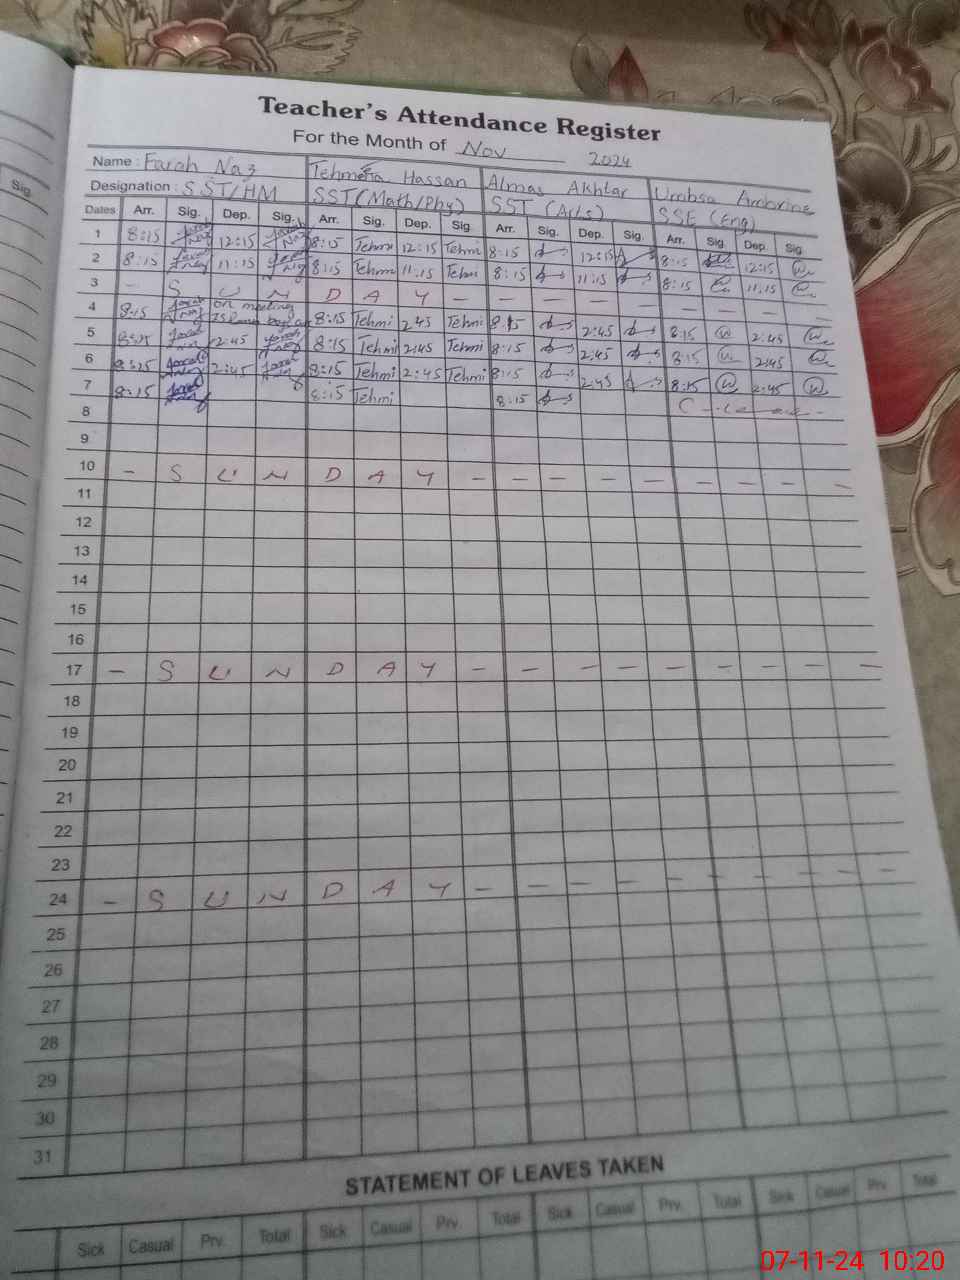 Sig.
Teacher's Attendance Register
For the Month of Nov 2024
Name : Farah Naz Tehmena Hassan Almas Akhtar Umbsa Ambrine
Designation : SST/HM SST(Math/Phy) SST (Arts) SSE (Eng)
Dates Arr. Sig. Dep. Sig. Arr. Sig. Dep. Sig. Arr. Sig. Dep. Sig. Arr. Sig. Dep. Sig.
1 8:15 Farah Naz 12:15 Farah Naz 8:15 Tehmi 12:15 Tehmi 8:15 12:15 8:15 12:15
2 8:15 Farah Naz 11:15 Farah Naz 8:15 Tehmi 11:15 Tehmi 8:15 11:15 8:15 11:15
3 – S U N D A Y – – – – – – – – –
4 8:15 Farah Naz on meeting 8:15 Tehmi 2:45 Tehmi 8:15 2:45 8:15 2:45
5 8:15 Farah Naz 2:45 Farah Naz 8:15 Tehmi 2:45 Tehmi 8:15 2:45 8:15 2:45
6 8:15 Farah Naz 2:45 Farah Naz 8:15 Tehmi 2:45 Tehmi 8:15 2:45 8:15 2:45
7 8:15 Farah Naz 8:15 Tehmi 8:15 C-Leave-
8
9
10 – S U N D A Y – – – – – – – – –
11
12
13
14
15
16
17 – S U N D A Y – – – – – – – – –
18
19
20
21
22
23
24 – S U N D A Y – – – – – – – – –
25
26
27
28
29
30
31
STATEMENT OF LEAVES TAKEN
Sick Casual Prv. Total Sick Casual Prv. Total Sick Casual Prv. Total Sick Casual Prv. Total
07-11-24 10:20